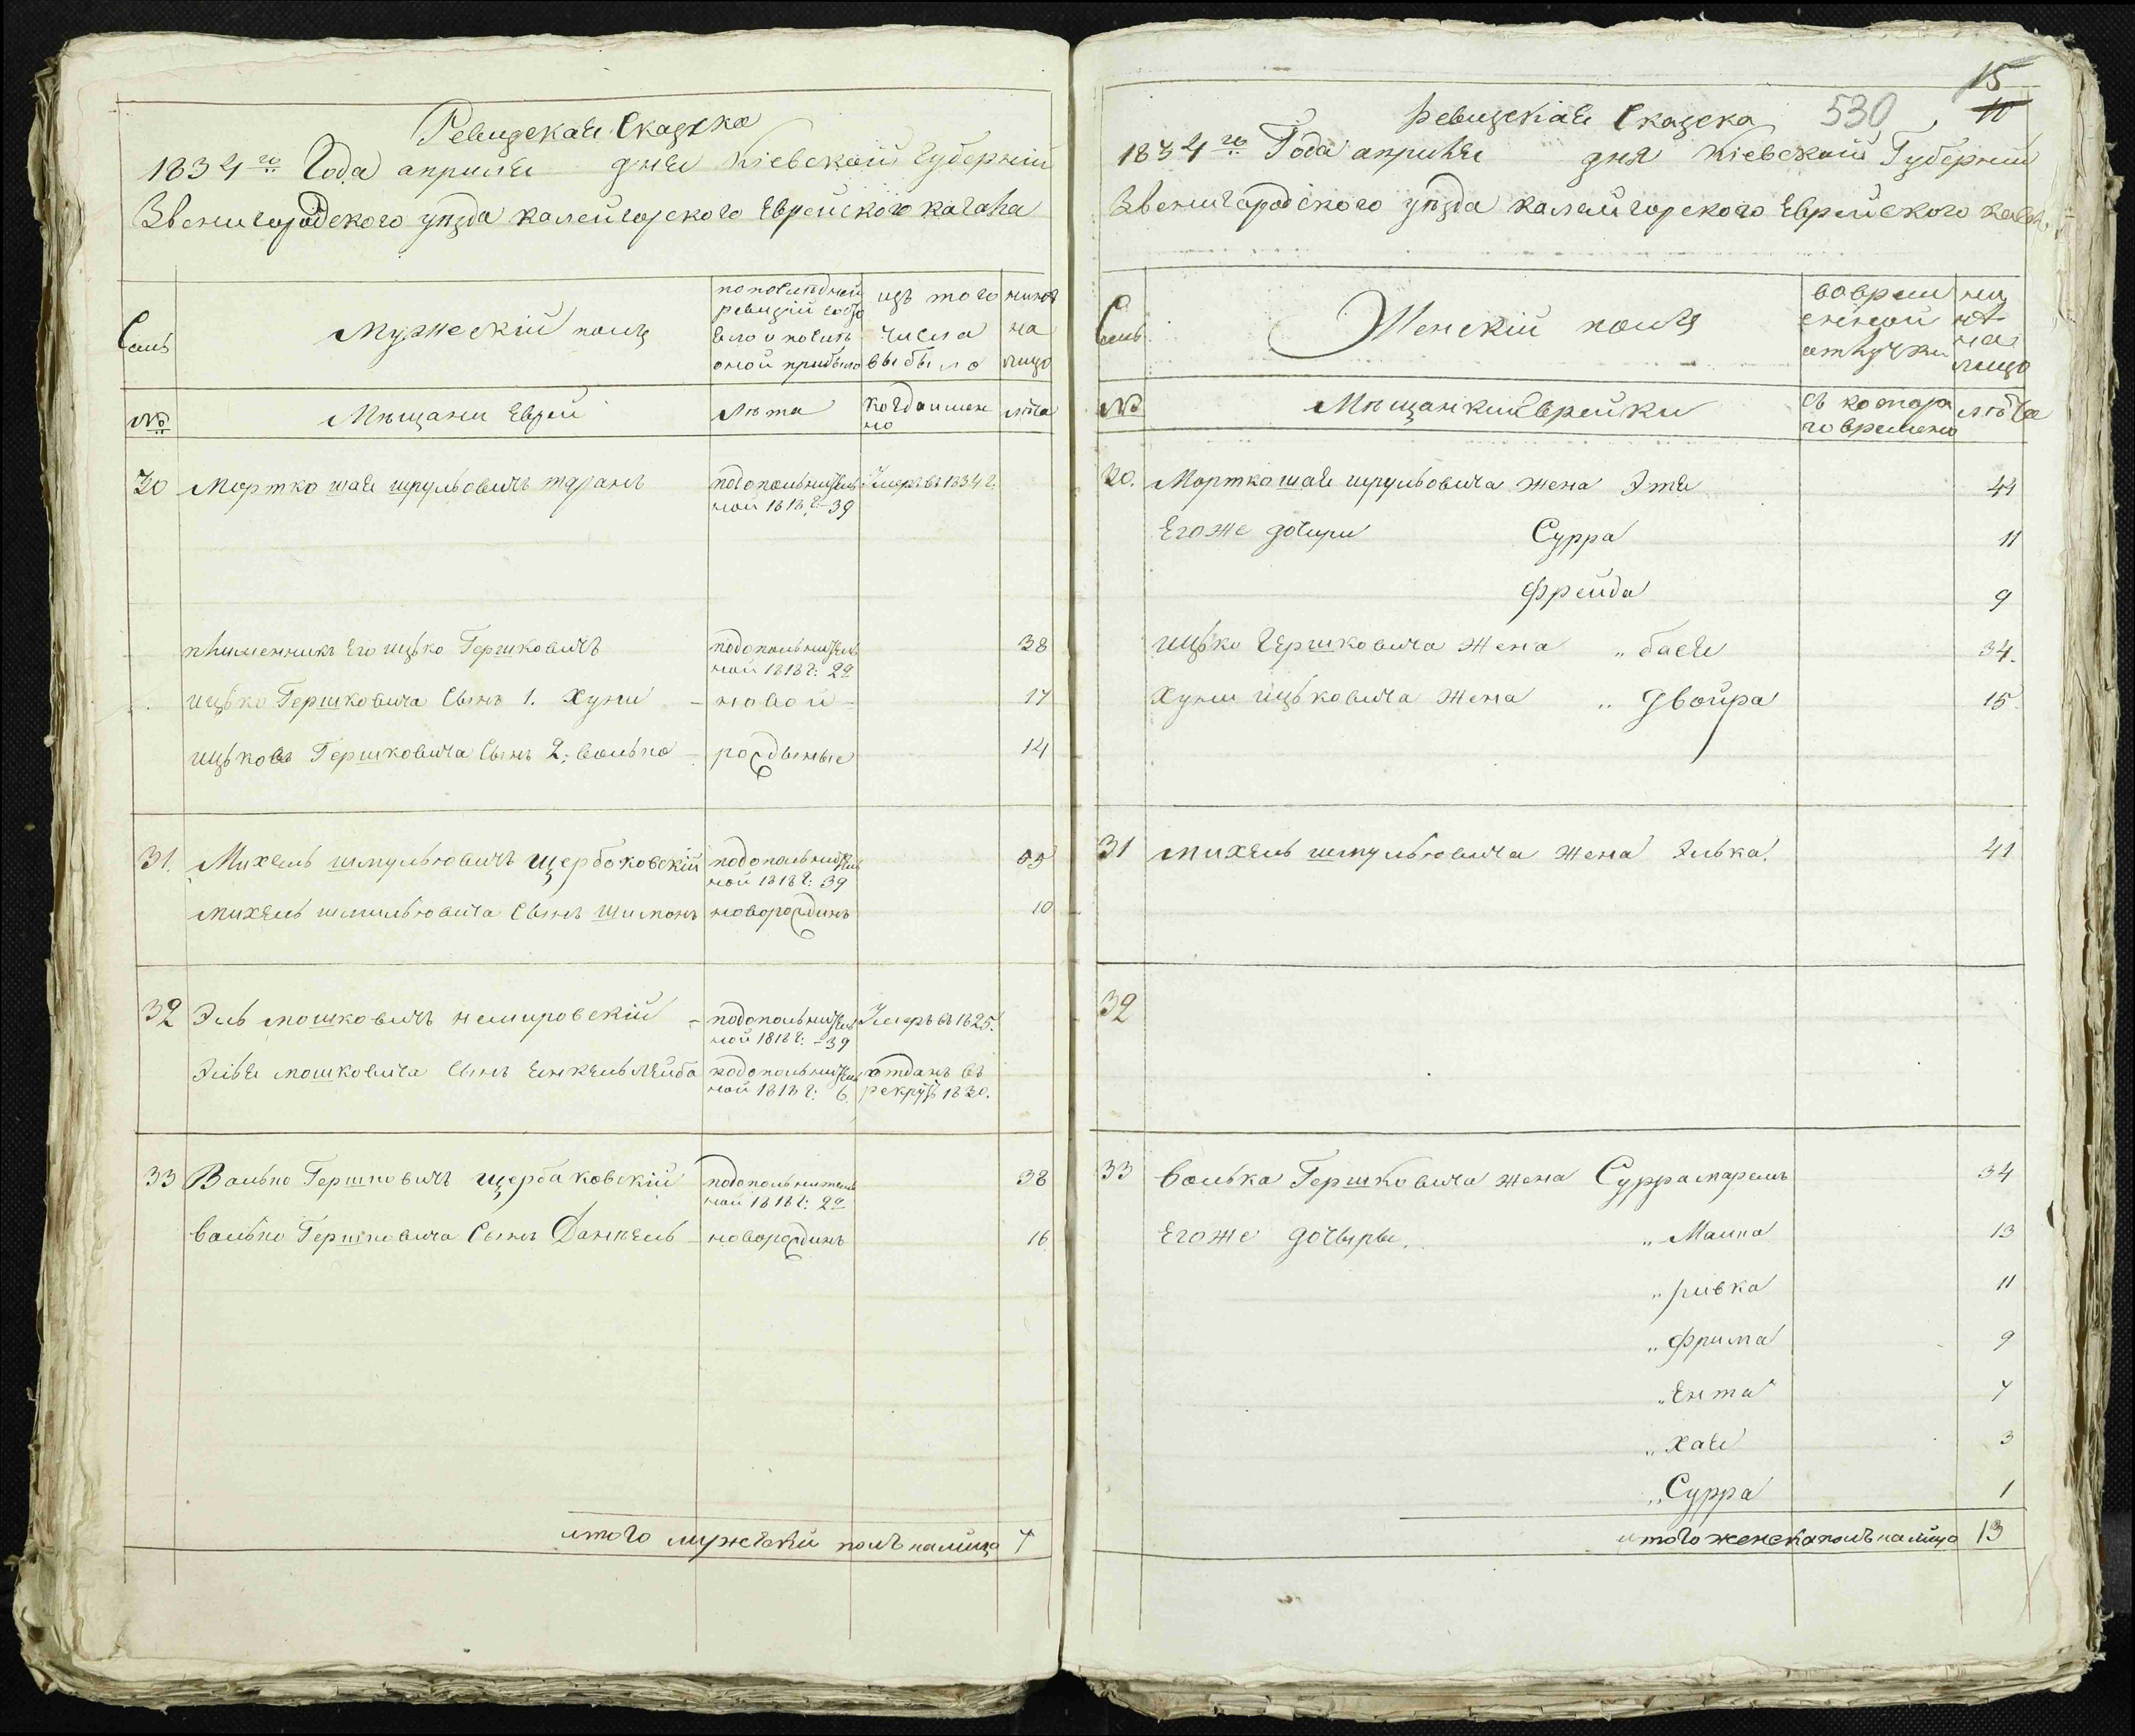 Ревизская Сказка
1834го Года апреля дня Кіевской Губерніи
Звенигородского уѣзда калейгорского Еврейского кагала
Семь
Мужескій полъ
по последней
ревизіи состо
яло и послѣ
оной прибыло
изъ того
числа
выбыло
ныне
на
лицо
№
Мѣщани Евреи
лѣта
когда имен
но
лѣта
30 Мортко шая шрульовичъ таранъ
по дополнитель
ной 1818 г: 39
Умеръ въ 1834 г.
племенникъ его ицько Гершковичъ
по дополнитель
ной 1818 г: 22
38
ицько Гершковича Сынъ 1. Хуни - новой - 17
ицьковъ Гершковича Сынъ 2: волько - рожденые 14
31. Михель шмульовичъ щербаковскій
по дополнитель
ной 1818 г: 39
55
михель шмульовича Сынъ шимонъ новорожденъ 10
32 Эль мошковичъ немировскій
по дополнитель
ной 1818 г: -39
Умеръ въ 1825.
Элья мошковича Сынъ Енкель Лейба
по дополнитель
ной 1818 г: 6.
отданъ въ
рекруты 1830.
33 Волько Гершковичъ щербаковскій
по дополнитель
ной 1818 г: 22
38
волько Гершковича Сынъ Данкель - новорожденъ 16
итого мужескій полъ налицо 7
15
530 10
Ревизская Сказка
1834го Года апреля дня Кіевской Губерніи
Звенигородского уѣзда калейгорского Еврейского кагал
Семь
Женскій полъ
во време
енной
отлучки
ны
нѣ
на
лицо
№
Мѣщанки Еврейки
съ котора
го времени
лѣта
30. Мортко шая шрульовича жена Этя 44
Его же дочири Сурра 11
Фрейда 9
ицько Гершковича жена „ бася 34.
Хуни ицьковича жена „ Двойра 15.
31 михель шмульовича жена Элька. 41
32
33 волька Гершковича жена Сурра маремъ 34
Его же дочыры. „ Малка 13
„ ривка 11
„ Фрима 9
„ Ента 7
„ Хая 3
„ Сурра 1
итого женска полъ на лицо 13